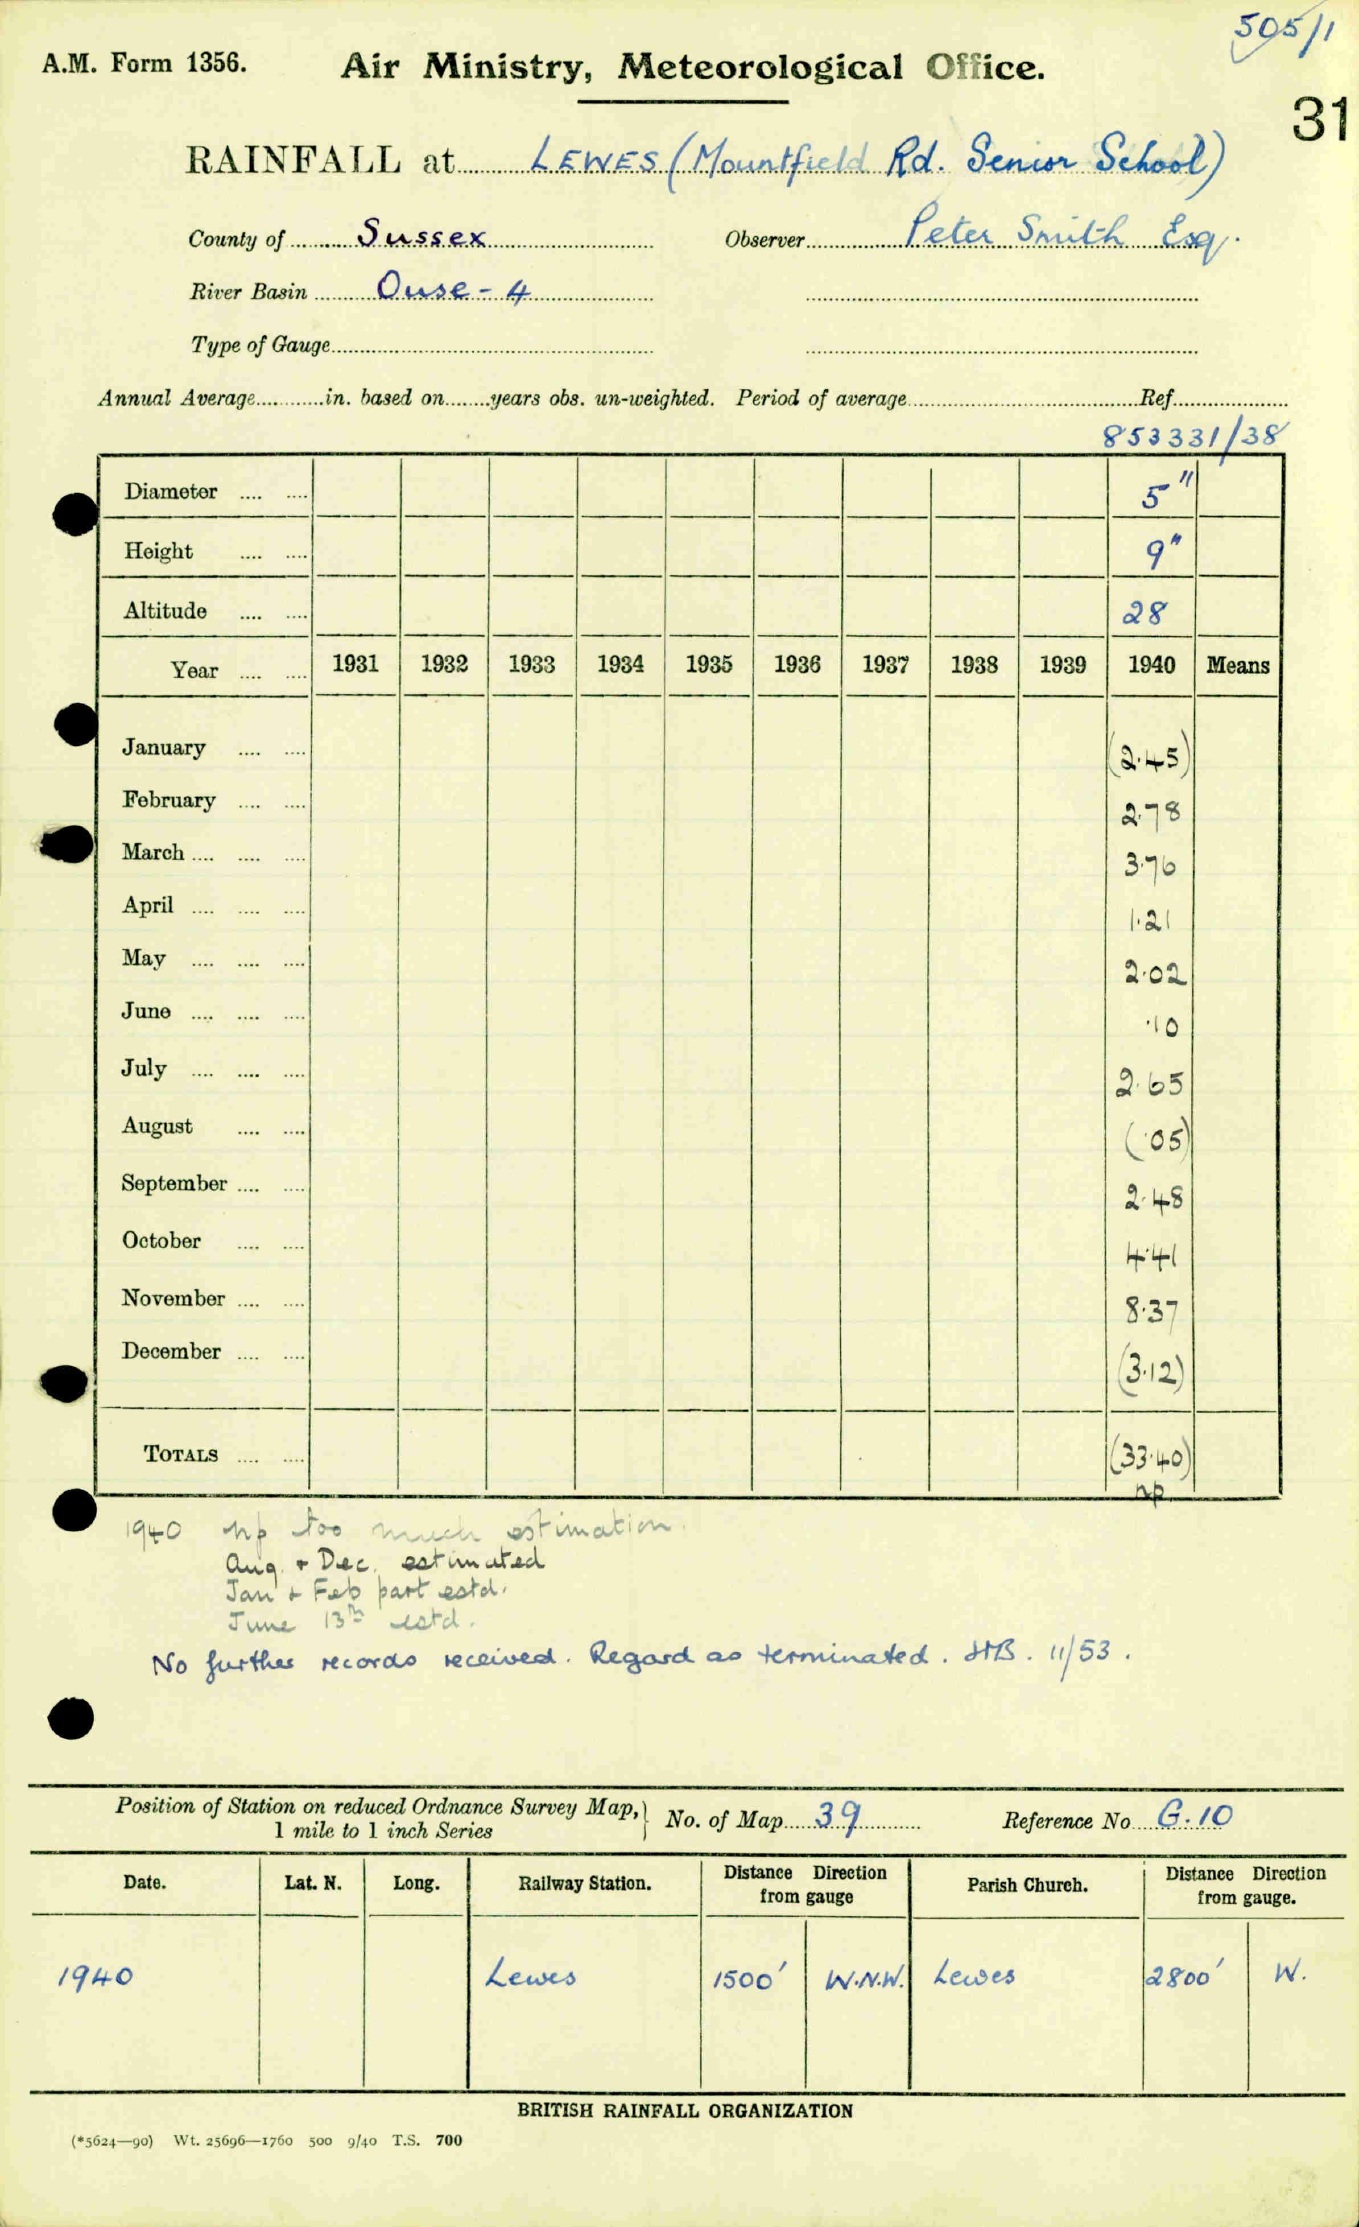 505/1
A.M. Form 1356. Air Ministry, Meteorological Office.
31
RAINFALL at LEWES (Mountfield Rd. Senior School)
County of Sussex Observer Peter Smith Esq.
River Basin Ouse - 4
Type of Gauge
Annual Average in. based on years obs. un-weighted. Period of average Ref
853331/38
Diameter 5"
Height 9"
Altitude 28
Year 1931 1932 1933 1934 1935 1936 1937 1938 1939 1940 Means
January (2.45)
February 2.78
March 3.76
April 1.21
May 2.02
June .10
July 2.65
August (.05)
September 2.48
October 4.41
November 8.37
December (3.12)
TOTALS (33.40)
np
1940 np too much estimation.
Aug. + Dec. estimated
Jan + Feb part estd.
June 13th estd.
No further records received. Regard as terminated. HB. 11/53.
Position of Station on reduced Ordnance Survey Map, 1 mile to 1 inch Series } No. of Map 39 Reference No G.10
Date. Lat. N. Long. Railway Station. Distance Direction from gauge Parish Church. Distance Direction from gauge.
1940 Lewes 1500' W.N.W. Lewes 2800' W.
BRITISH RAINFALL ORGANIZATION
(*5624—90) Wt. 25696—1760 500 9/40 T.S. 700